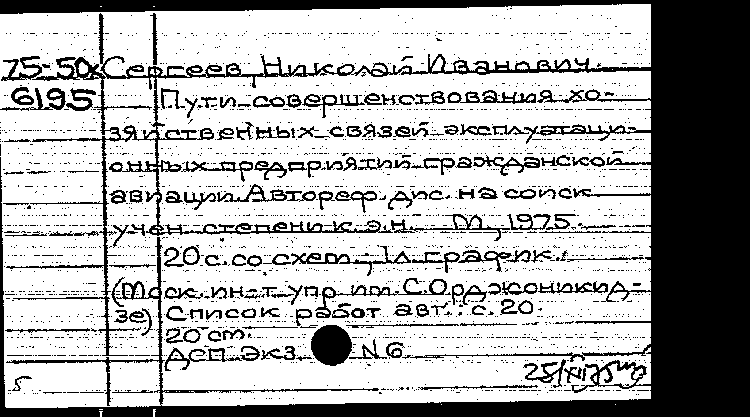 75-50к Сергеев, Николай Иванович.
6195 Пути совершенствования хо-
зяйственных связей эксплуатаци-
онных предприятий гражданской
авиации. Автореф. дис. на соиск.
учен. степени к. э. н. М., 1975.
20 с. со схем., 1 л. график.
(Моск. ин-т упр. им. С. Орджоникид-
зе) Список работ авт.: с. 20.
20 cm.
ДСП Экз. N 6
25/XII 75
5